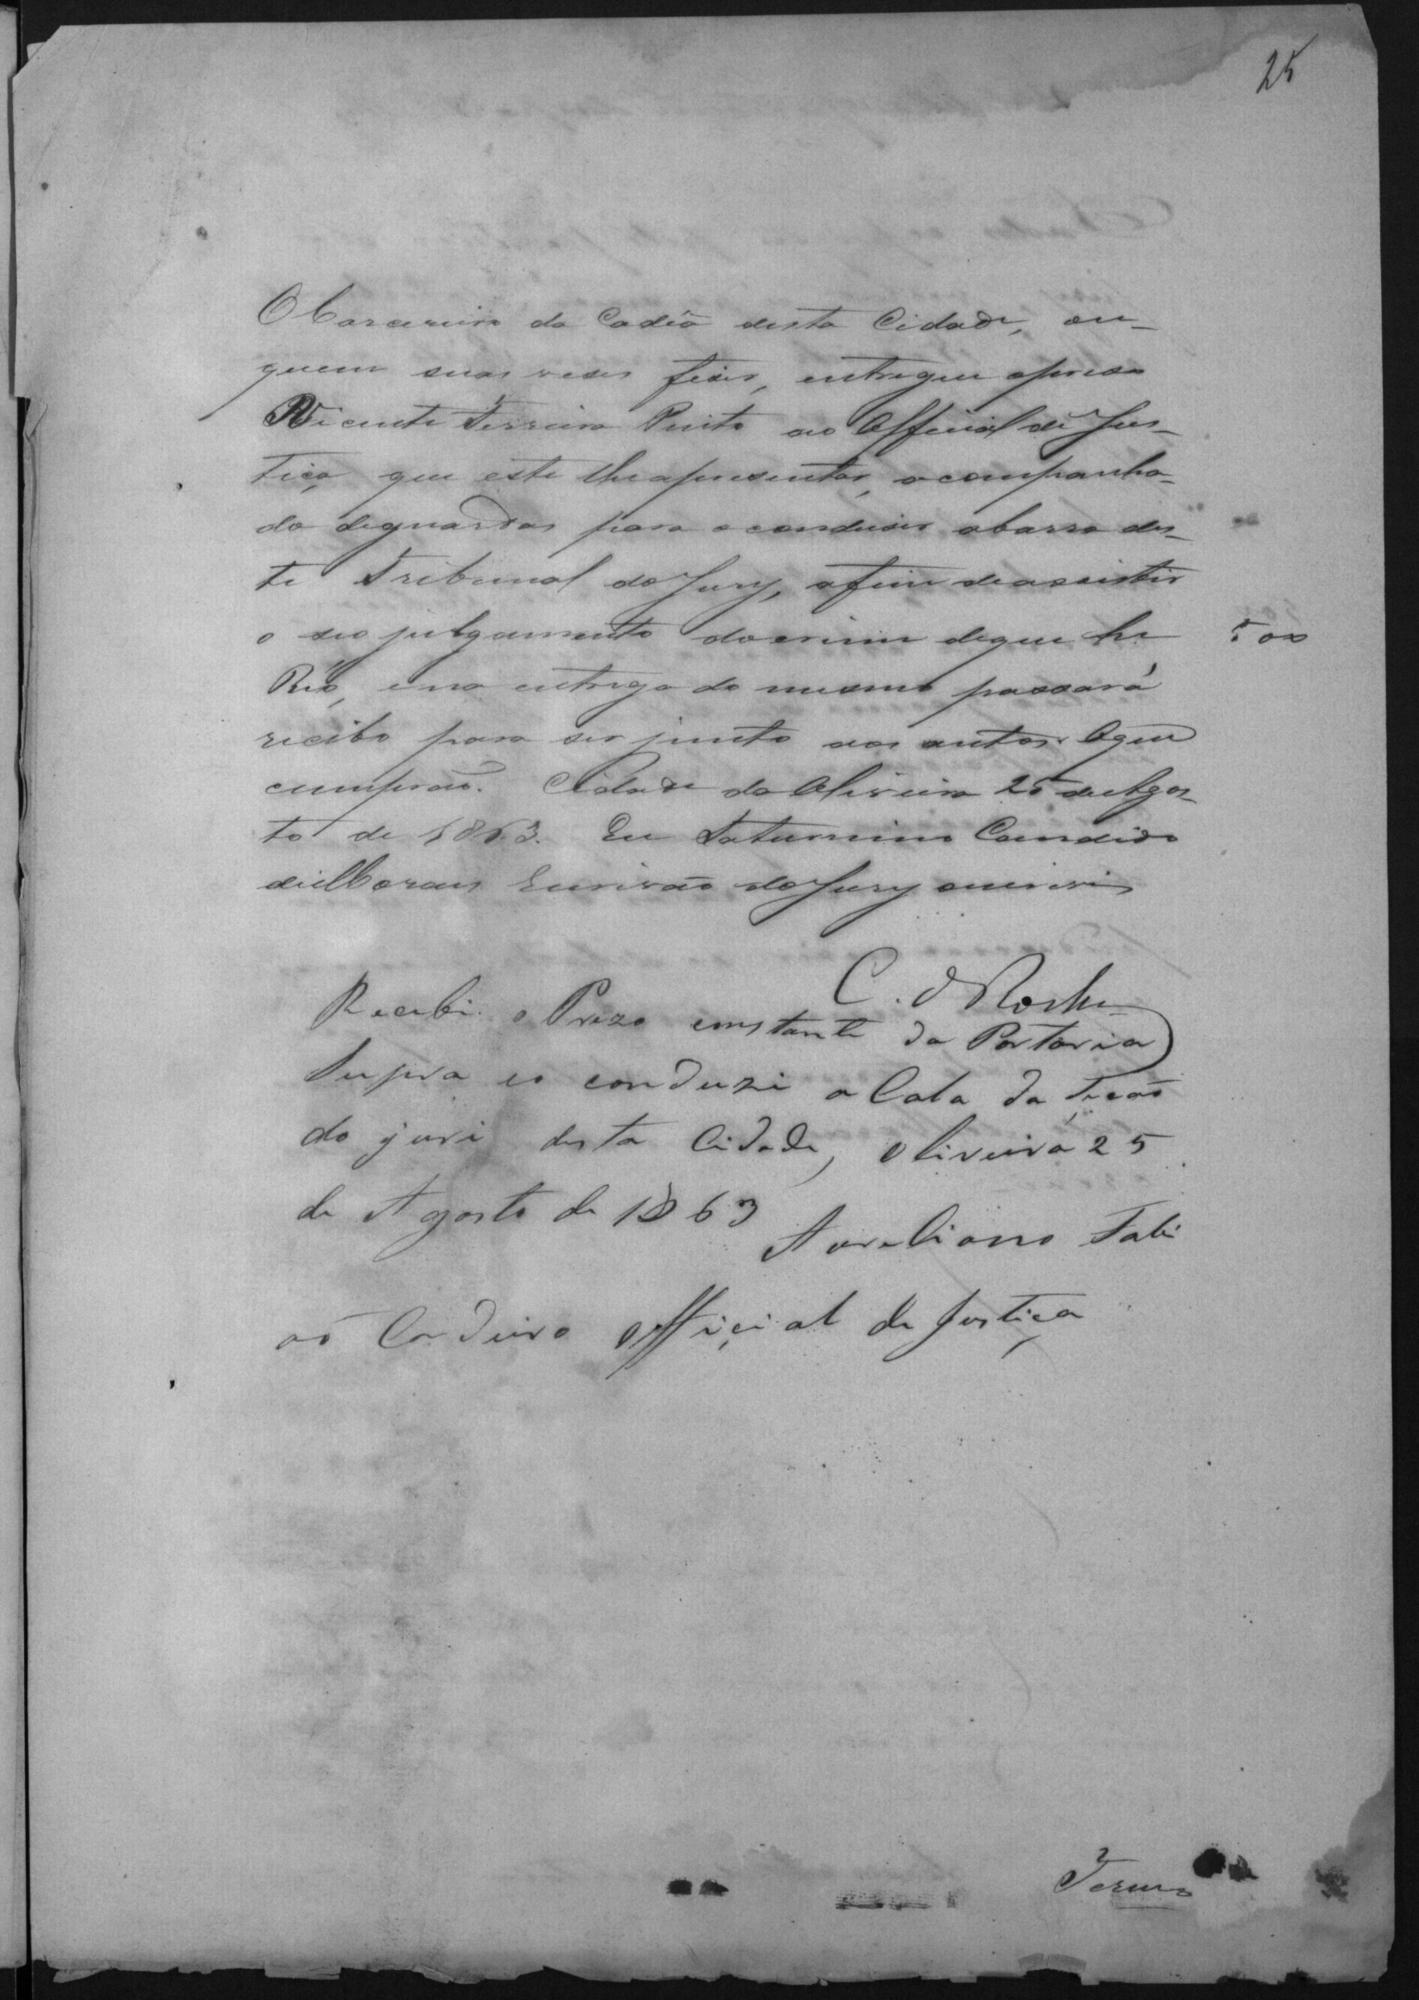 25
O Carcereiro da Cadêa desta Cidade, ou
quem suas veses fiser, entregue opreso
Vicente Ferreira Pinto ao Official de Jus-
tiça que este lheapresentar, acompanha-
do deguardas para o condusir abarra des-
te Tribunal do Jury, afim deassistir
o seo julgamento docrime deque he
Réo, e na entrega do mesmo passará
recibo para ser junto aos autos. Oque
cumprão. Cidade da Oliveira 25 de Agos-
to de 1863. Eu Saturnino Candido
de Moraes Escrivão do Jury oescrevi
C. d Rocha
Recebi o Prezo constante da Portaria
Supra eo conduzi a Cala da
do juri desta Cidade, Oliveira 25
de Agosto de 1863
Aureliano Fabi
aõ Cordeiro official de Justiça
Termo